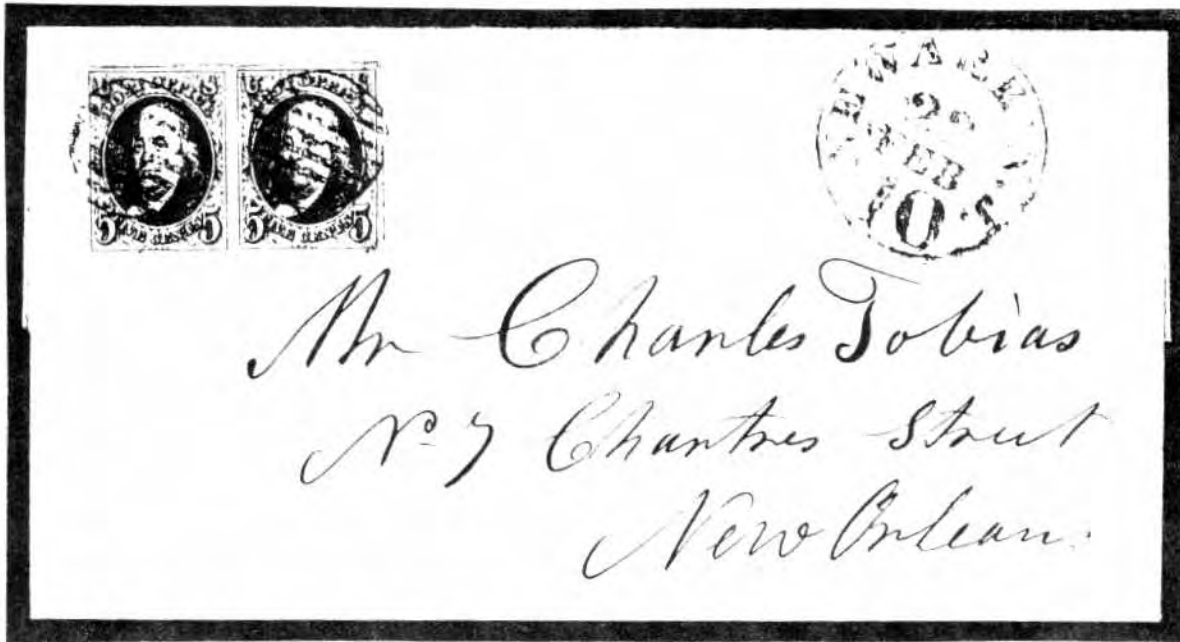 POST OFFICE
FIVE CENTS
5 5
POST OFFICE
FIVE CENTS
5 5
NEWARK
FEB
10
Mr Charles Tobias
No 7 Chartres Street
New Orleans